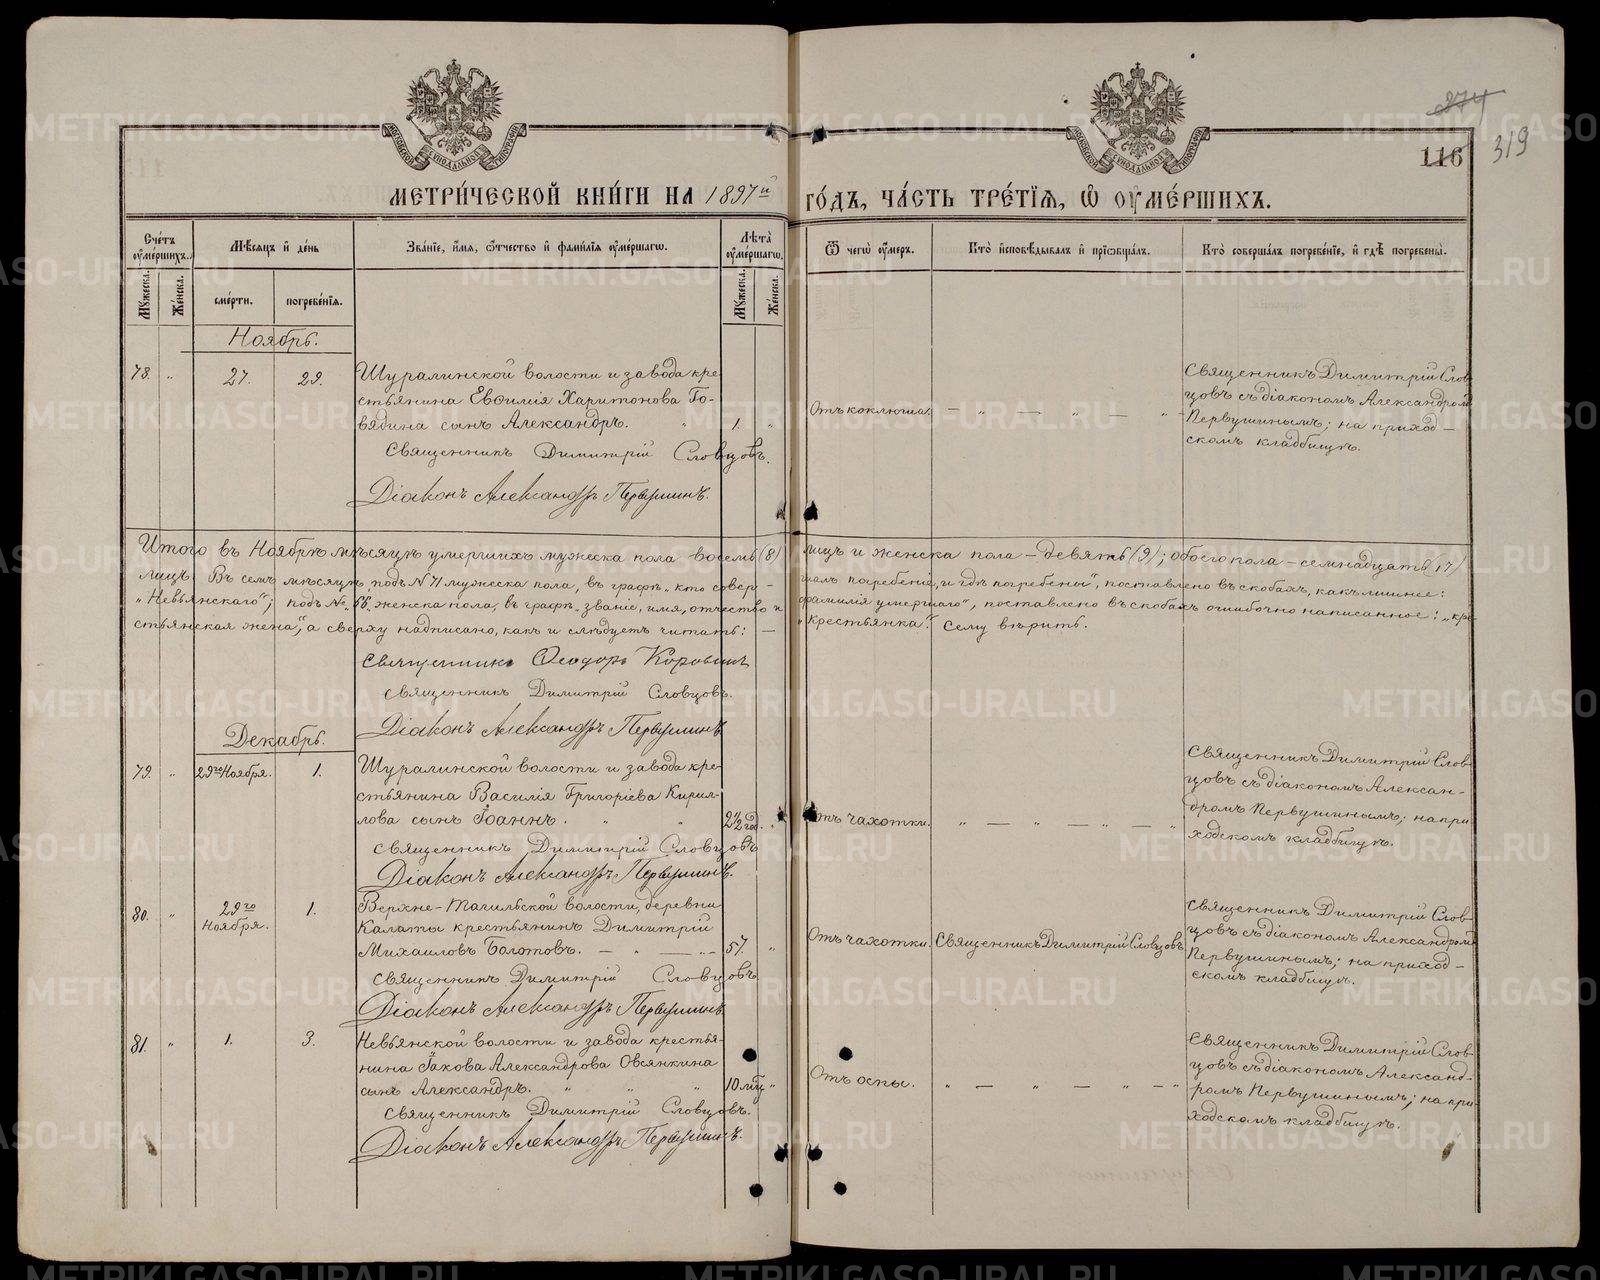 МЕТРИ́ЧЕСКОЙ КНИ́ГИ НА 1897й ГО́ДЪ, ЧА́СТЬ ТРЕ́ТІЯ, Ѡ ОУМЕ́РШИХЪ.
274
116
319
МОСКОВСКОЙ СѴНОДАЛЬНОЙ ТИПОГРАФІИ
МОСКОВСКОЙ СѴНОДАЛЬНОЙ ТИПОГРАФІИ
Сче́тъ оуме́ршихъ.
Мужеска.
Же́нска.
Мѣсяцъ и́ де́нь
сме́рти.
погребе́нія.
Зва́ніе, и́мя, ѻ́тчество и́ фами́лія оуме́ршагѡ.
Лѣта̀ оуме́ршагѡ.
Мужеска.
Же́нска.
Ѿ чегѡ̀ оу́меръ.
Кто̀ и҆сповѣ́дывалъ и҆ прїѡбща́лъ.
Кто̀ соверша́лъ погребе́ніе, и҆ гдѣ̀ погребены̀.
Ноябрь.
78. „ 27. 29. Шуралинской волости и завода кре-
стьянина Евѳимія Харитонова Го-
вядина сынъ Александръ. „ 1. „
Священникъ Димитрій Словцовъ.
Діаконъ Александръ Первушинъ.
Отъ коклюша. — „ — „ — „ —
Священникъ Димитрій Слов-
цовъ съ діакономъ Александромъ
Первушинымъ; на приход-
скомъ кладбищѣ.
Итого въ Ноябрѣ мѣсяцѣ умершихъ мужеска пола – восемь (8) лицъ и женска пола – девять (9); обоего пола – семнадцать (17)
лицъ. Въ семъ мѣсяцѣ подъ № 71 мужеска пола, въ графѣ „кто совер- шалъ погребеніе, и гдѣ погребены“, поставлено въ скобахъ, какъ лишнее:
„Невьянскаго“; подъ №. 66. женска пола, въ графѣ „званіе, имя, отчество и фамилія умершаго“, поставлено въ скобахъ ошибочно написанное: „кре-
стьянская жена“, а сверху надписано, какъ и слѣдуетъ читать: — „Крестьянка“. Сему вѣрить.
Священникъ Ѳеодоръ Коровинъ
Священникъ Димитрій Словцовъ.
Діаконъ Александръ Первушинъ
Декабрь.
79. „ 29го Ноября. 1. Шуралинской волости и завода кре-
стьянина Василія Григоріева Кирил-
лова сынъ Іоаннъ. „ „ 2½ год. „
Священникъ Димитрій Словцовъ
Діаконъ Александръ Первушинъ.
Отъ чахотки. „ — „ — „ — „
Священникъ Димитрій Слов-
цовъ съ діакономъ Алексан-
дромъ Первушинымъ; на при-
ходскомъ кладбищѣ.
80. „ 29го Ноября. 1. Верхне-Тагильской волости, деревни
Калаты крестьянинъ Димитрій
Михаиловъ Болотовъ. — „ — „ — 57. „
Священникъ Димитрій Словцовъ
Діаконъ Александръ Первушинъ
Отъ чахотки. Священникъ Димитрій Словцовъ.
Священникъ Димитрій Слов-
цовъ съ діакономъ Александромъ
Первушинымъ; на приход-
скомъ кладбищѣ.
81. „ 1. 3. Невьянской волости и завода крестья-
нина Іакова Александрова Овсянкина
сынъ Александръ. „ „ „ 10 мѣц „
Священникъ Димитрій Словцовъ.
Діаконъ Александръ Первушинъ.
Отъ оспы. „ — „ — „ — „
Священникъ Димитрій Слов-
цовъ съ діакономъ Александ-
ромъ Первушинымъ; на при-
ходскомъ кладбищѣ.
METRIKI.GASO-URAL.RU